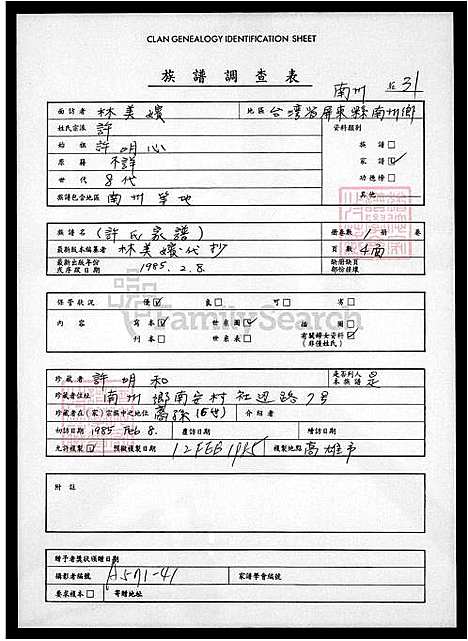 CLAN GENEALOGY IDENTIFICATION SHEET
族譜調查表
南州 31
面訪者 林美嬪 地區 台灣省屏東縣南州鄉
姓氏宗派 許 資料類別
始祖 許明心 族譜 □
原籍 不詳 家譜 ☑
世代 8代 功德榜 □
族譜包含地區 南州等地 其他
族譜名 (許氏家譜) 冊卷數 1 冊 卷
最新版本編纂者 林美嬪代抄 頁數 4面
最新出版年份或序跋日期 1985.2.8. 缺冊缺頁部份接續
保管狀況 優 ☑ 良 □ 可 □ 劣 □
內容 寫本 ☑ 世系圖 ☑ 插圖 □
刊本 □ 世系表 □ 有關婦女資料(非僅姓氏) ☑
FamilySearch
珍藏者 許明和 是否列入本族譜 是
珍藏者住址 南州鄉南安村社邊路7号
珍藏者在(家)宗族中之地位 裔孫(5世) 介紹者
初訪日期 1985 Feb 8. 覆訪日期 續訪日期
允許複製 ☑ 預擬複製日期 12 FEB 1985 複製地點 高雄市
附註
贈予者獎狀頒贈日期
攝影者編號 A571-41 家譜學會編號
要求複本 □ 寄贈地址